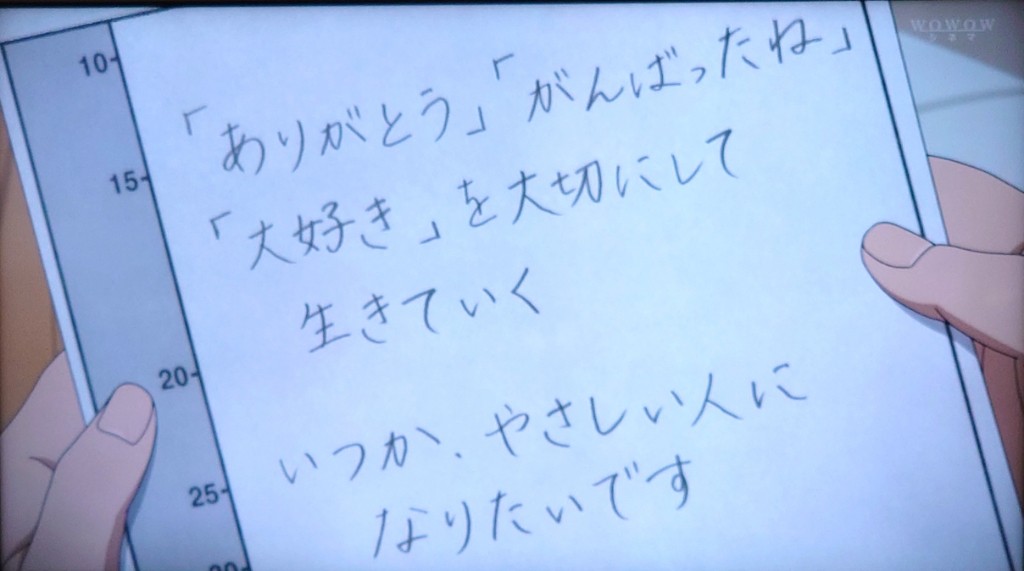 WOWOW
シネマ
10
「ありがとう」「がんばったね」
15
「大好き」を大切にして
生きていく
20
いつか、やさしい人に
25
なりたいです
30